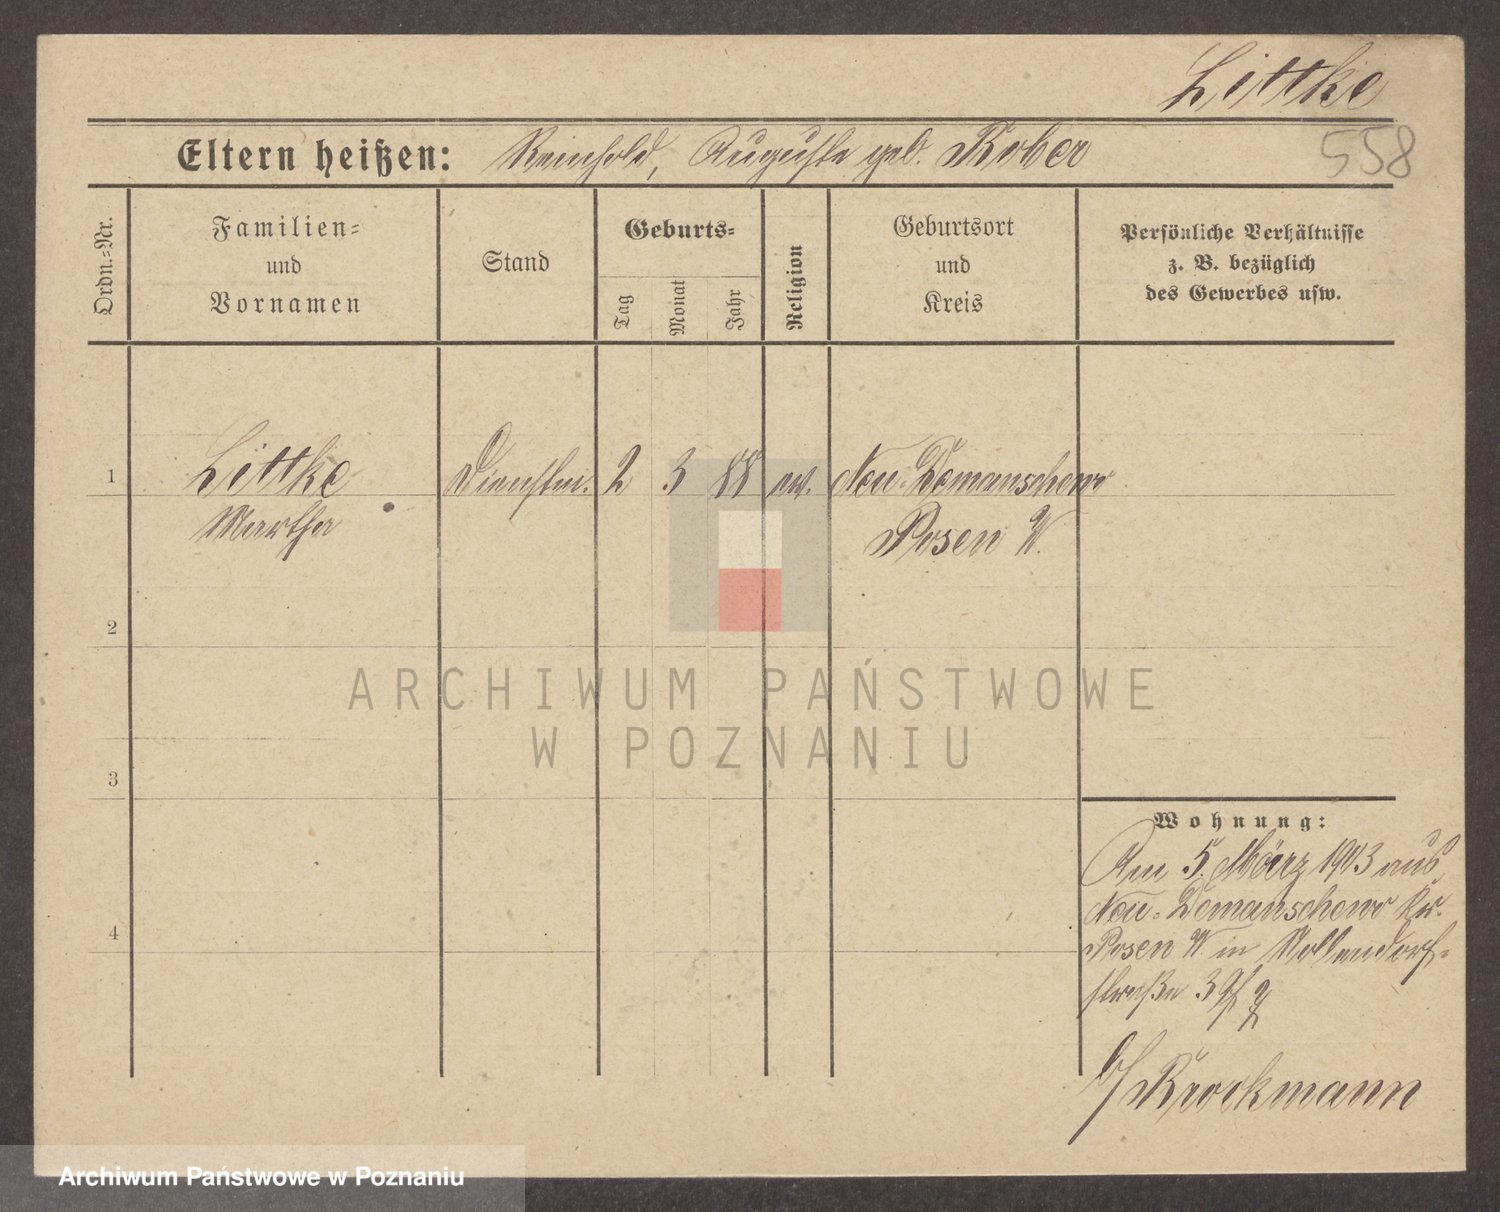 Littke
558
Eltern heißen: Reinhold, Auguste geb. Kober
Ordn.-Nr.
Familien-
und
Vornamen
Stand
Geburts-
Tag
Monat
Jahr
Religion
Geburtsort
und
Kreis
Persönliche Verhältnisse
z. B. bezüglich
des Gewerbes usw.
1
Littke
Martha
Dienstm.
2
3
88
ev.
Neu-Demanschewo
Posen W.
2
3
4
Wohnung:
Am 5. März 1903 aus
Neu-Demanschewo Kr.
Posen W. in Nollendorf-
straße 39
b/ Krockmann
ARCHIWUM PAŃSTWOWE
W POZNANIU
Archiwum Państwowe w Poznaniu